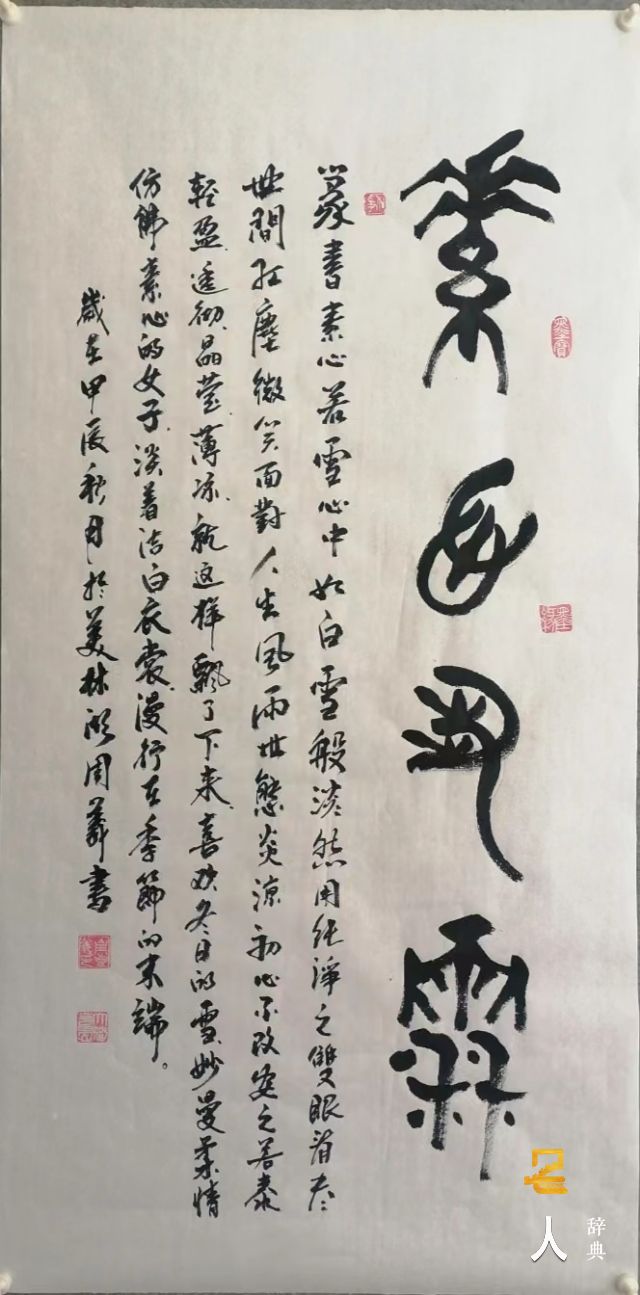 素心若雪
篆書素心若雪心中如白雪般淡然用純淨之雙眼看盡
世間紅塵微笑面對人生風雨世態炎涼初心不改安之若泰
輕盈透彻晶莹薄凉就这样飘了下来喜欢冬日的雪妙曼柔情
仿佛素心的女子淡着洁白衣裳漫行在季節的末端。
歲在甲辰秋月於美林湖周義書
名人
辞典